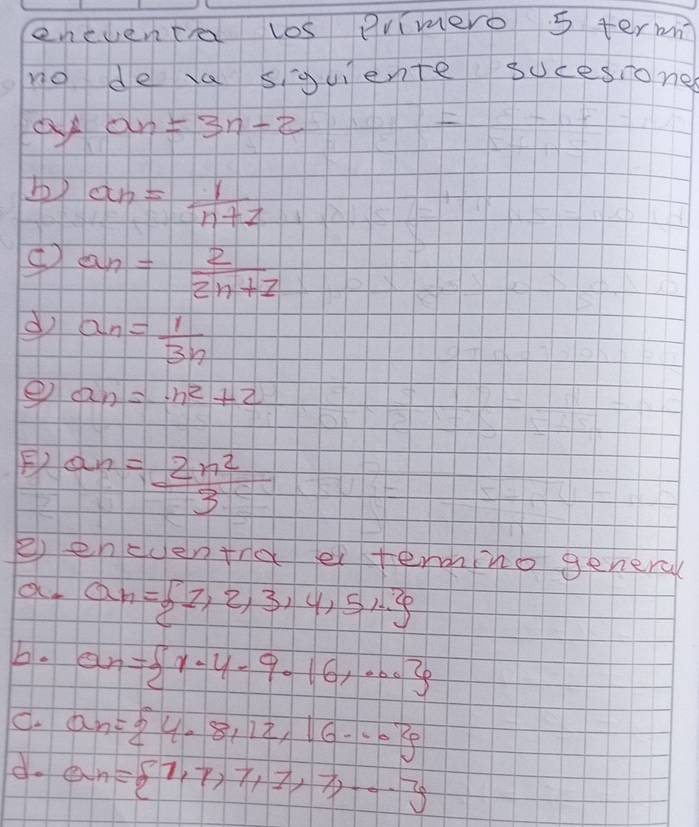 encuentra los Primero 5 termi
no de la siguiente sucesiones
a) an = 3n - 2 =
b) an = 1/n+1
c) an = 2/2n+1
d) an = 1/3n
e) an = n² + 2
F) an = 2n²/3
2) encuentra el termino general
a. an = {1, 2, 3, 4, 5, ..}
b. an = {1 - 4 - 9 - 16, ...}
c. an = {4. 8, 12, 16 ...}
d. an = {1, 1, 1, 1, 1, ...}